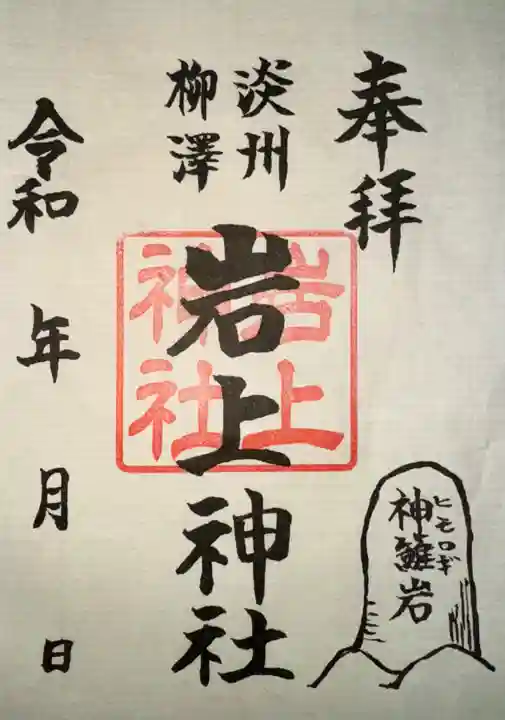 奉拝
淡州
柳澤
岩上神社
岩上
神社
ヒモロギ
神籬岩
令和 年 月 日